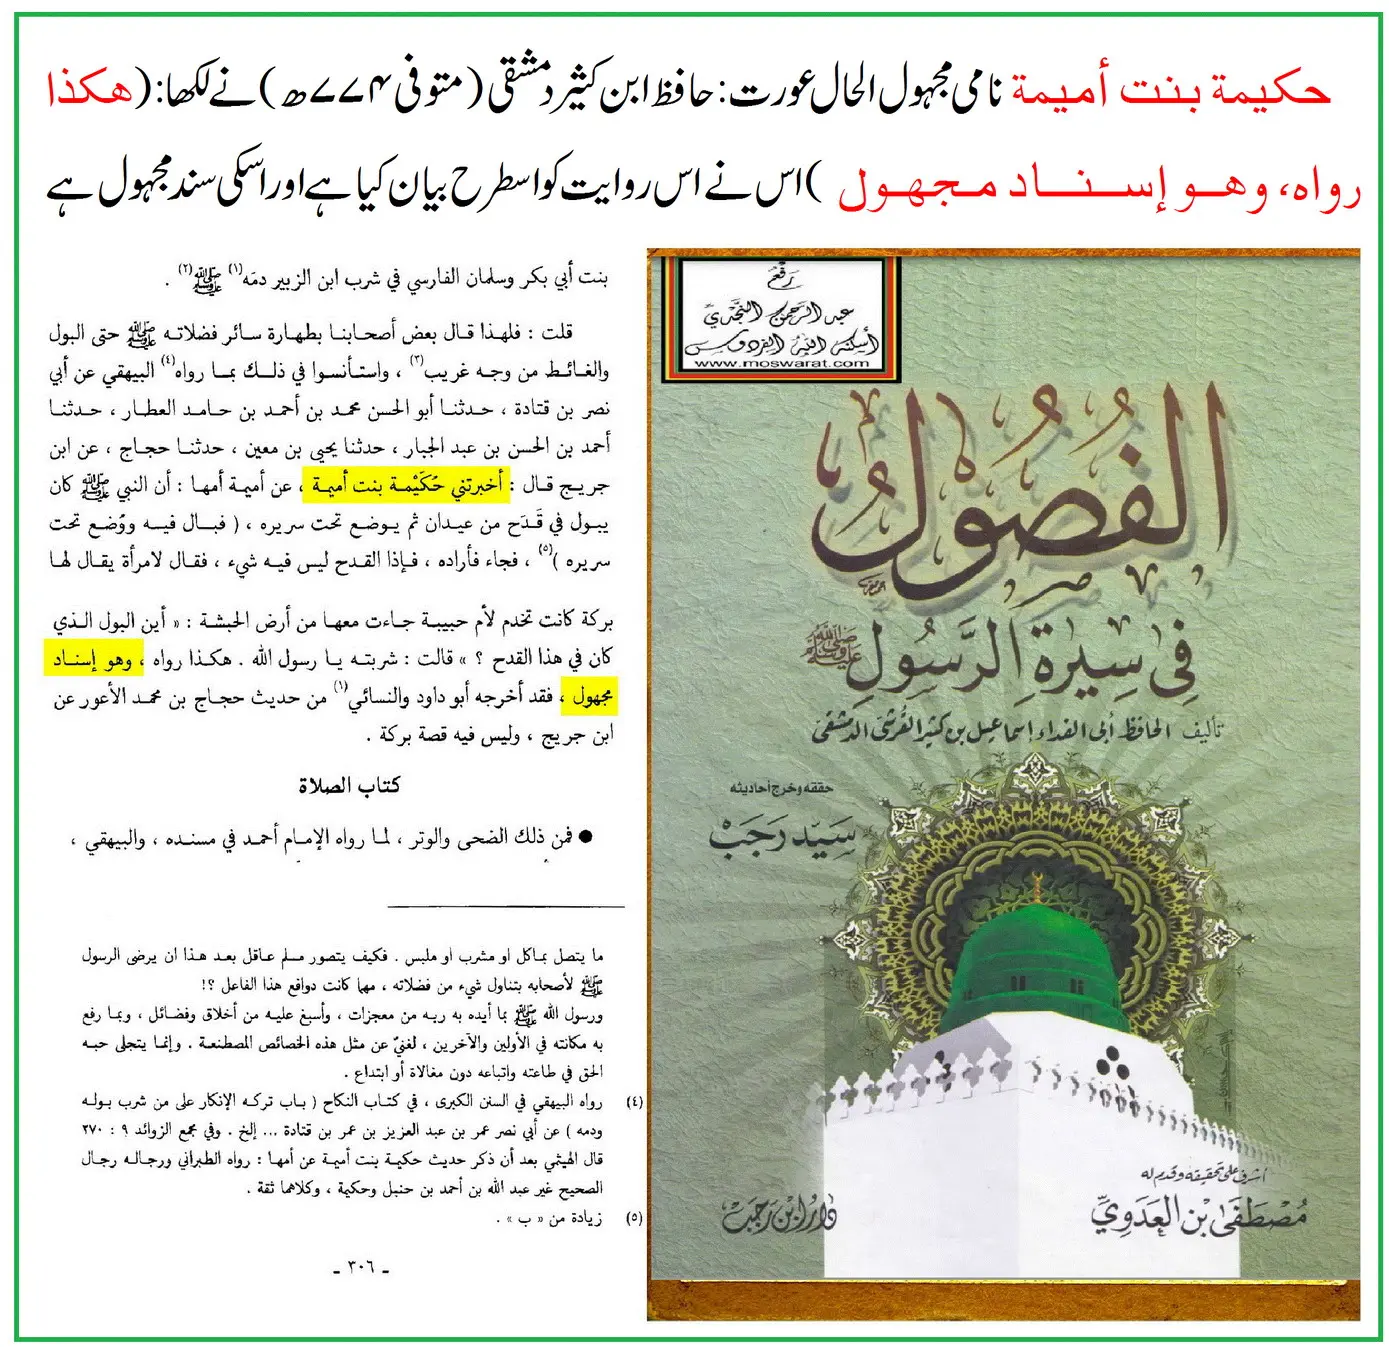 حكيمة بنت أميمة نامی مجہول الحال عورت: حافظ ابن کثیر دمشقی (متوفی ۷۷۴ھ) نے لکھا: (هكذا
رواه، وهو إسناد مجهول ) اس نے اس روایت کو اسطرح بیان کیا ہے اور اسکی سند مجہول ہے
بنت أبي بكر وسلمان الفارسي في شرب ابن الزبير دمَه(١) ﷺ(٢) .
قلت : فلهذا قال بعض أصحابنا بطهارة سائر فضلاته ﷺ حتى البول
والغائط من وجه غريب(٣) ، واستأنسوا في ذلك بما رواه(٤) البيهقي عن أبي
نصر بن قتادة ، حدثنا أبو الحسن محمد بن أحمد بن حامد العطار ، حدثنا
أحمد بن الحسن بن عبد الجبار ، حدثنا يحيى بن معين ، حدثنا حجاج ، عن ابن
جريج قال : أخبرتني حُكَيْمة بنت أميمة ، عن أميمة أمها : أن النبي ﷺ كان
يبول في قَدَح من عيدان ثم يوضع تحت سريره ، ( فبال فيه ووُضع تحت
سريره )(٥) ، فجاء فأراده ، فإذا القدح ليس فيه شيء ، فقال لامرأة يقال لها
بركة كانت تخدم لأم حبيبة جاءت معها من أرض الحبشة : « أين البول الذي
كان في هذا القدح ؟ » قالت : شربته يا رسول الله . هكذا رواه ، وهو إسناد
مجهول ، فقد أخرجه أبو داود والنسائي(١) من حديث حجاج بن محمد الأعور عن
ابن جريج ، وليس فيه قصة بركة .
كتاب الصلاة
● فمن ذلك الضحى والوتر ، لما رواه الإمام أحمد في مسنده ، والبيهقي ،
ما يتصل بمأكل او مشرب او ملبس . فكيف يتصور مسلم عاقل بعد هذا ان يرضى الرسول
ﷺ لأصحابه بتناول شيء من فضلاته ، مهما كانت دوافع هذا الفاعل ؟!
ورسول الله ﷺ بما أيده به ربه من معجزات ، وأسبغ عليه من أخلاق وفضائل ، وبما رفع
به مكانته في الأولين والآخرين ، لغنيّ عن مثل هذه الخصائص المصطنعة . وإنما يتجلى حبه
الحق في طاعته واتباعه دون مغالاة أو ابتداع .
(٤) رواه البيهقي في السنن الكبرى ، في كتاب النكاح ( باب تركه الإنكار على من شرب بوله
ودمه ) عن أبي نصر عمر بن عبد العزيز بن عمر بن قتادة ... إلخ . وفي مجمع الزوائد ٩ : ٢٧٠
قال الهيثمي بعد أن ذكر حديث حكيمة بنت أميمة عن أمها : رواه الطبراني ورجاله رجال
الصحيح غير عبد الله بن أحمد بن حنبل وحكيمة ، وكلاهما ثقة .
(٥) زيادة من « ب » .
ـ ٣٠٦ ـ
رفع
عبد الرحمن النجدي
أسكنه الله الفردوس
www.moswarat.com
الفُصُولُ
فِي سِيرَةِ الرَّسُولِ ﷺ
تأليف الحافظ أبي الفداء إسماعيل بن كثير القرشي الدمشقي
حققه وخرج أحاديثه
سَيِّد رَجَب
أشرف على تحقيقه وقدم له
مُصْطَفَى بْن العَدَوِيّ
دَارُ ابْن رَجَب